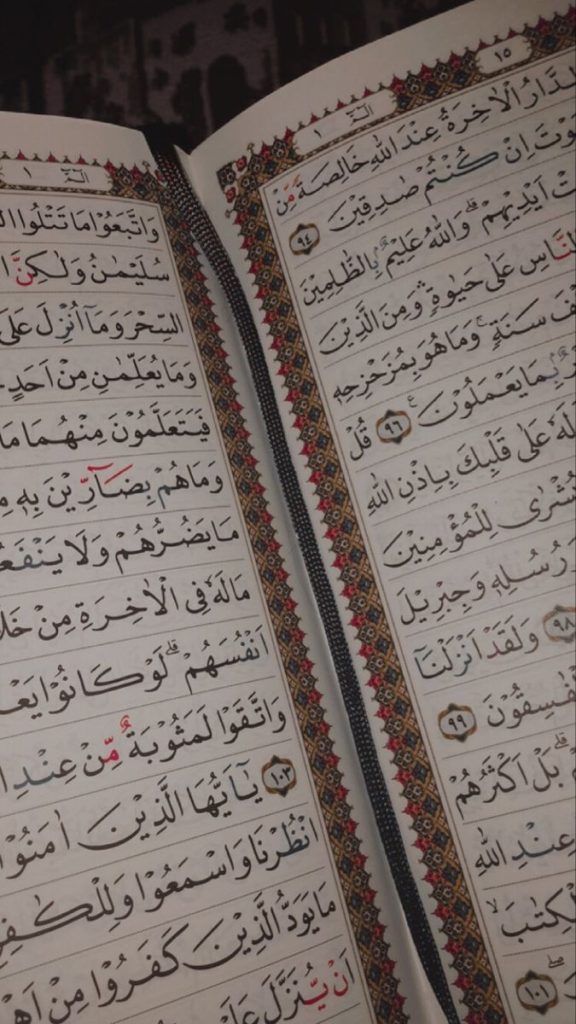 ١٥
الٓمّٓ ١
الدَّارُ الْاٰخِرَةُ عِنْدَ اللّٰهِ خَالِصَةً مِّنْ
اِنْ كُنْتُمْ صٰدِقِيْنَ ٩٤
اَيْدِيْهِمْ ۗ وَاللّٰهُ عَلِيْمٌ ۢبِالظّٰلِمِيْنَ
النَّاسِ عَلٰى حَيٰوةٍ ۛوَمِنَ الَّذِيْنَ
سَنَةٍ ۚ وَمَا هُوَ بِمُزَحْزِحِهٖ
بِمَا يَعْمَلُوْنَ ࣖ ٩٦ قُلْ
عَلٰى قَلْبِكَ بِاِذْنِ اللّٰهِ
لِلْمُؤْمِنِيْنَ
رُسُلِهٖ وَجِبْرِيْلَ
٩٨ وَلَقَدْ اَنْزَلْنَآ
٩٩
بَلْ اَكْثَرُهُمْ
عِنْدِ اللّٰهِ
الْكِتٰبَۙ
١٠١
الٓمّٓ ١
وَاتَّبَعُوْا مَا تَتْلُوا
سُلَيْمٰنُ وَلٰكِنَّ
السِّحْرَ وَمَآ اُنْزِلَ عَلَى
وَمَا يُعَلِّمٰنِ مِنْ اَحَدٍ
فَيَتَعَلَّمُوْنَ مِنْهُمَا مَا
وَمَا هُمْ بِضَاۤرِّيْنَ بِهٖ
مَا يَضُرُّهُمْ وَلَا
مَا لَهٗ فِى الْاٰخِرَةِ مِنْ
اَنْفُسَهُمْ ۗ لَوْ كَانُوْا
وَاتَّقَوْا لَمَثُوْبَةٌ مِّنْ عِنْدِ
١٠٣ يٰٓاَيُّهَا الَّذِيْنَ اٰمَنُوْا
انْظُرْنَا وَاسْمَعُوْا
مَا يَوَدُّ الَّذِيْنَ كَفَرُوْا مِنْ
اَنْ يُّنَزَّلَ